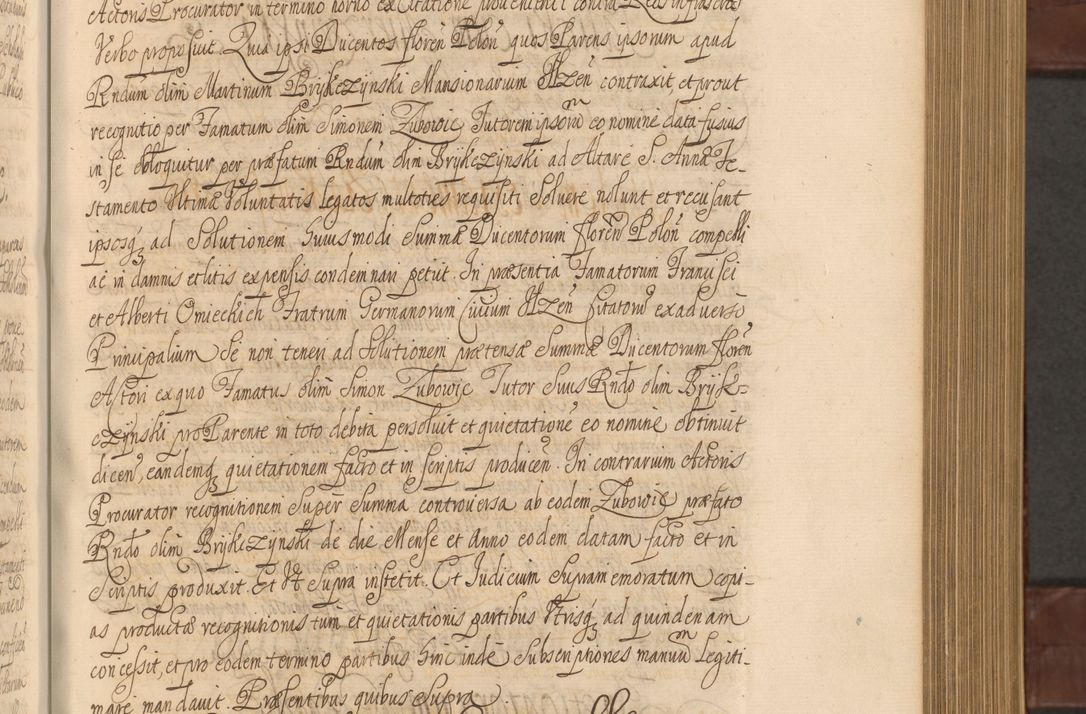 Actoris Procurator in termino horno ex Citatione provenienti contra Reos infrascros
Verbo proposuit. Quia ipsi Ducentos floren Polon quos Parens ipsorum apud
Rndum olim Martinum Brÿkczÿnski Mansionarium Ilzen contraxit et prout
recognitio per Famatum olim Simonem Zubowic Tutorem ipsorum eo nomine data fusius
in se obloquitur per præfatum Rndum olim Brÿkczÿnski ad Altare S. Annæ Te-
stamento Ultimæ Voluntatis legatos multoties requisiti Solvere nolunt et recusant
ipsosq3 ad Solutionem huiusmodi Summæ Ducentorum floren Polon compelli
ac in damnis et litis expensis condemnari petiit. In præsentia Famatorum Francisci
et Alberti Omieckich Fratrum Germanorum Civium Ilzen Citatoru ex adverso
Principalium Se non teneri ad Solutionem prætensæ Summæ Ducentorum floren
Actori ex quo Famatus olim Simon Zubowic Tutor Suus Rndo olim Brÿk-
czÿnski pro Parente in toto debita persolvit et quietatione eo nomine obtinuit
dicen, eandemq3 quietationem facto et in scriptis producen. In contrarium Actoris
Procurator recognitionem Super Summa controversa ab eodem Zubowic præfato
Rndo olim Brÿkczÿnski de die Mense et Anno eodem datam facto et in
Scriptis produxit. Et Ut Supra institit. Et Iudicium Supramemoratum copi-
as productæ recognitionis tum et quietationis partibus Utrisq3 ad quindenam
concessit, et pro eodem termino partibus hinc inde Subscriptiones manuum Legiti-
mare mandavit. Præsentibus quibus Supra